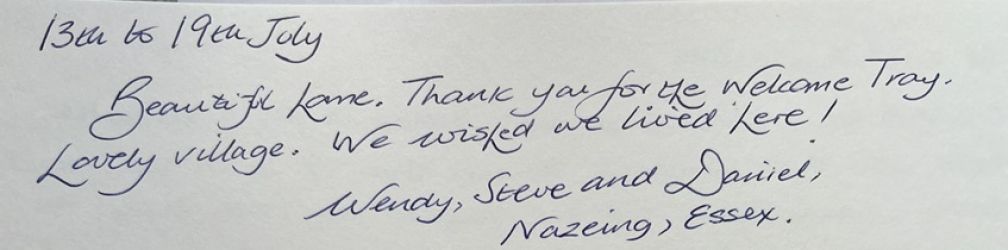 13th to 19th July
Beautiful home. Thank you for the Welcome Tray.
Lovely village. We wished we lived here!
Wendy, Steve and Daniel,
Nazeing, Essex.